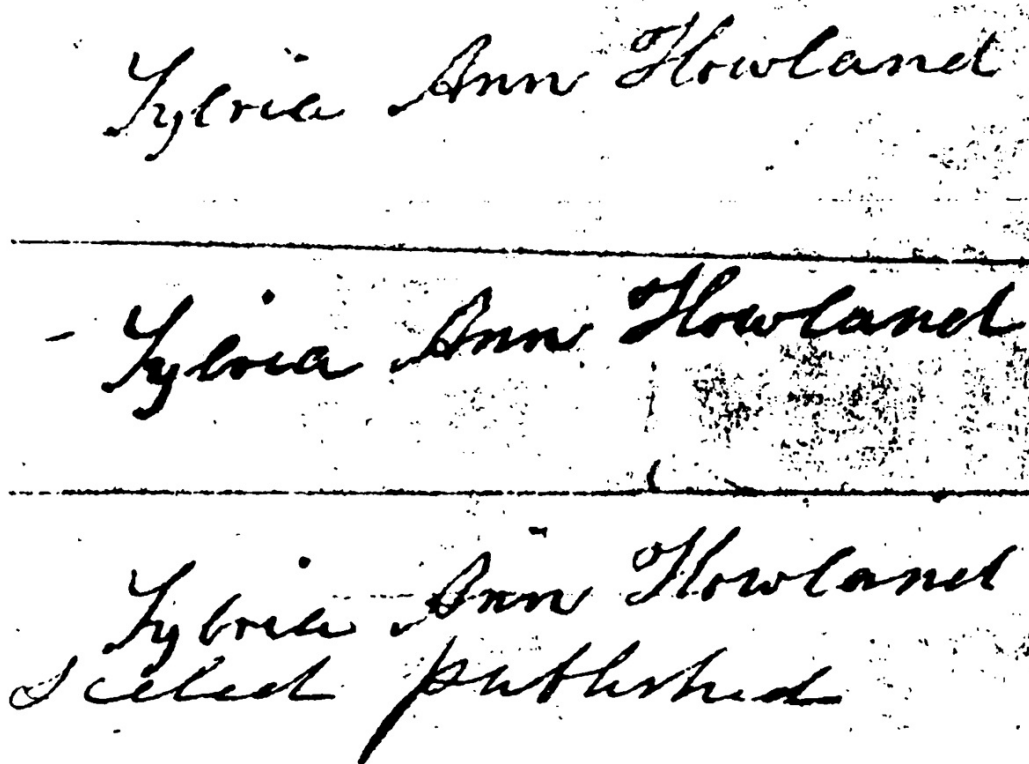 Sylvia Ann Howland
Sylvia Ann Howland
Sylvia Ann Howland
published